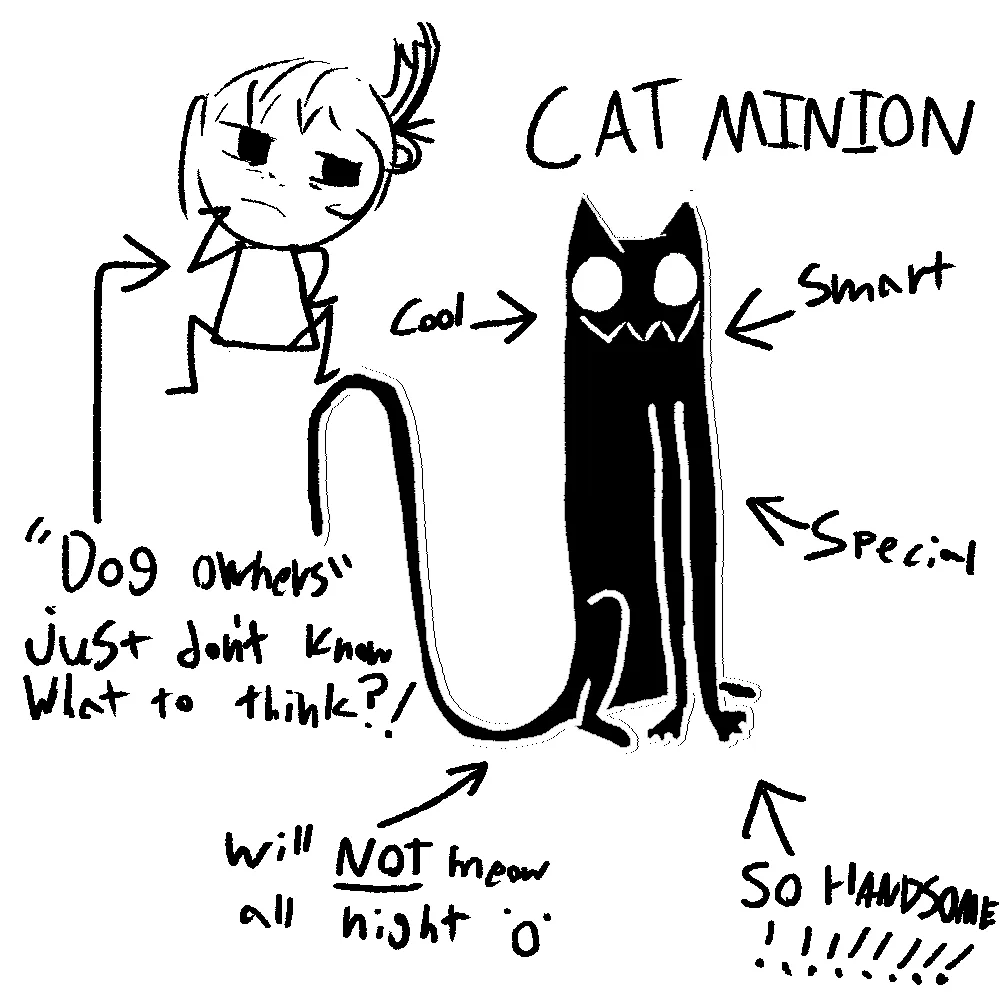 CAT MINION
Cool
Smart
Special
"Dog owners"
just don't know
What to think?!
will NOT meow
all night 'o'
SO HANDSOME
!!!!!!!!